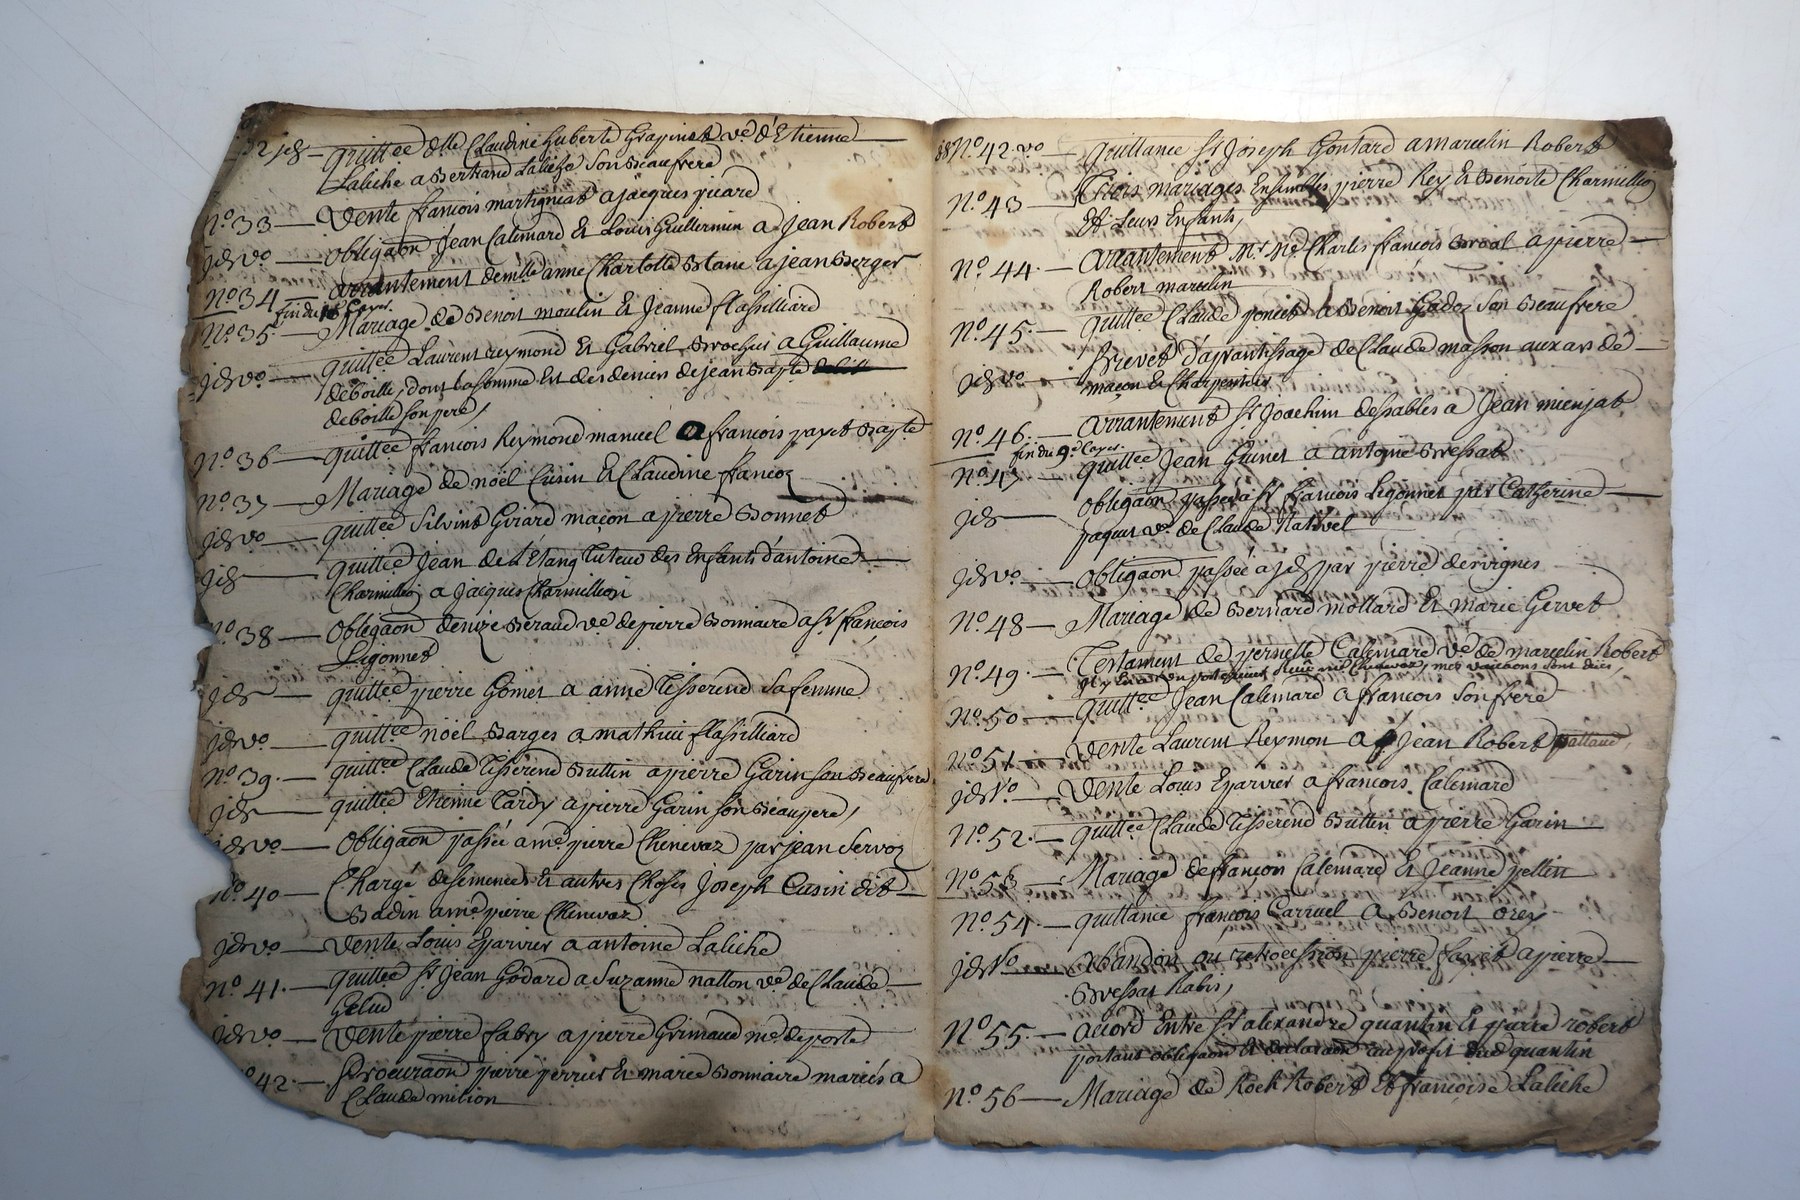 32 jd — quittce dlle Claudine huberte Grapinet ve d'Etienne
Laliche a Bertrand Laliche son Beaufrere
No 33 — Vente francois martigniat a jacques picard
jd vo — obligaon Jean Calemard Et Louis Guillermin a Jean Robert
No 34 — arrantement demlle anne Charlotte Blanc a jean Berger
fin du 8e Cayer.
No 35 — Mariage de Benoit moulin Et Jeanne flassilliard
jd vo — quittce Laurent reymond Et Gabriel Brochus a Guillaume
deboille, dont la somme Est des deniers de jean Bapte
deboille son pere,
No 36 — quittce francois Reymond manuel a francois payet Bapte
No 37 — Mariage de noël Cusin Et Claudine francoz
jd vo — quittce Silvint Girard maçon a pierre Bonnet
jd — quittce Jean de L'Etang Tuteur des Enfants d'antoine
Charmillion a jacques Charmillion
No 38 — Obligaon denize Beraud ve de pierre Bonnaire a sr francois
Ligonnet
jd — quittce pierre Gomet a anne Tisserend sa femme
jd vo — quittce noël Barges a mathieu flassilliard
No 39. — quittce Claude Tisserend Buttin a pierre Garin son Beaufrere
jd — quittce Etienne Tardy a pierre Garin son Beaupere,
jd vo — Obligaon passée a me pierre Chenevaz par jean Servoz
No 40 — Chargé de semences Et autres Choses Joseph Casin dit
Badin a me pierre Chenevaz
jd vo — Vente Louis Eparvier a antoine Laliche
No 41. — quittce sr Jean Godard a Suzanne nallon ve de Claude
Gelud
jd vo — Vente pierre fabry a pierre Grimaud md de porte
No 42. — Procuraon pierre perrier Et marie Bonnaire mariés a
Claude milion
No 42. vo — quittance sr Joseph Gontard a marcelin Robert
No 43 — Trois mariages Ensembles pierre Rey Et Benoite Charmillion
Et Leurs Enfants,
No 44. — arrantement Mr Me Charles francois Broal a pierre
Robert marcelin
No 45. — quittce Claude poncet a Benoit Gadoz son Beaufrere
jd vo — Brevet d'aprantissage de Claude masson aux arts de
maçon Et Charpentier
No 46. — arrantement sr Joachim dessables a Jean mienjat
fin du 9e Cayer.
No 47 — quittce Jean Grinet a antoine Bressat
jd — obligaon passée a sr francois Ligonnet par Catherine
paquet ve de Claude Nativel
jd vo — obligaon passée a jd par pierre dervignes
No 48 — Mariage de Bernard mollard Et marie Gervet
No 49. — Testament de pernette Calemard ve de marcelin Robert
No 50 — quittce Jean Calemard a francois son frere
No 51 — Vente Laurent Reymon a Jean Robert pattaud,
jd Vo — Vente Louis Eparvier a francois Calemard
No 52. — quittce Claude Tisserend Buttin a pierre Garin
No 53 — Mariage de françon Calemard Et Jeanne pellin
No 54. — quittance francois Carruel a Benoit orey
jd Vo — abandon ou retrocession pierre favet a pierre
Bressat Rabis,
No 55. — accord Entre sr alexandre quantin Et pierre robert
portant obligaon Et declaraon au profit dud quantin
No 56 — Mariage de Roch Robert Et francoise Laliche